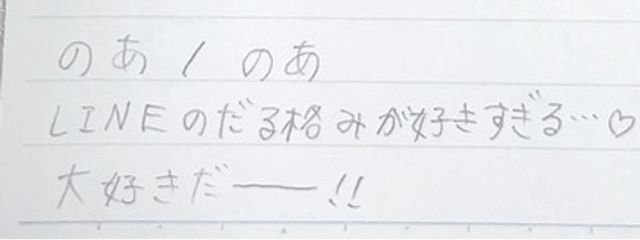 のあ / のあ
LINEのだる格みが好きすぎる…♡
大好きだ――!!